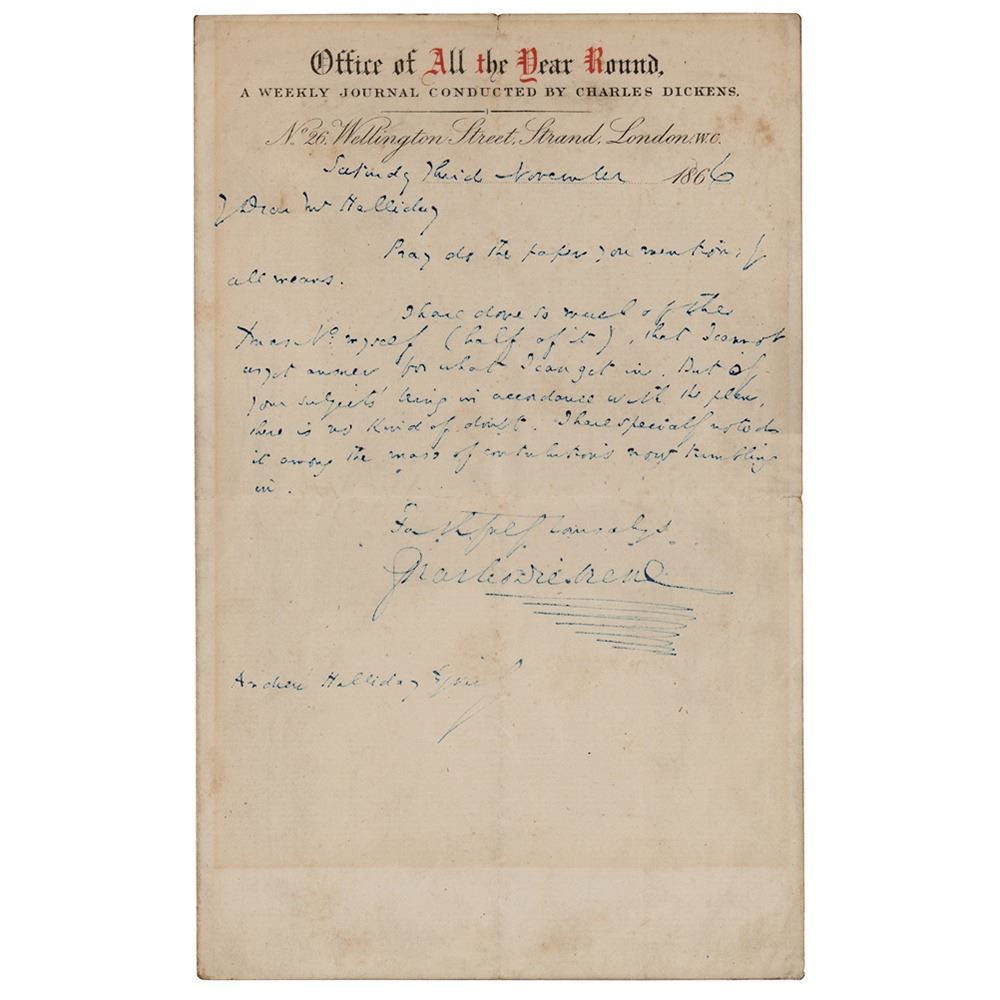 Office of All the Year Round,
A WEEKLY JOURNAL CONDUCTED BY CHARLES DICKENS.
No. 26, Wellington Street, Strand, London, W.C.
Saturday Third November 1866
My Dear Mr Halliday
Pray do the paper you mention, by
all means.
I have done so much of the
Xmas No. myself (half of it), that I cannot
as yet answer for what I can get in. But of
your subjects' being in accordance with the plan,
there is no kind of doubt. I have specially noted
it among the mass of contributions now tumbling
in.
Faithfully Yours always
Charles Dickens
Andrew Halliday Esquire